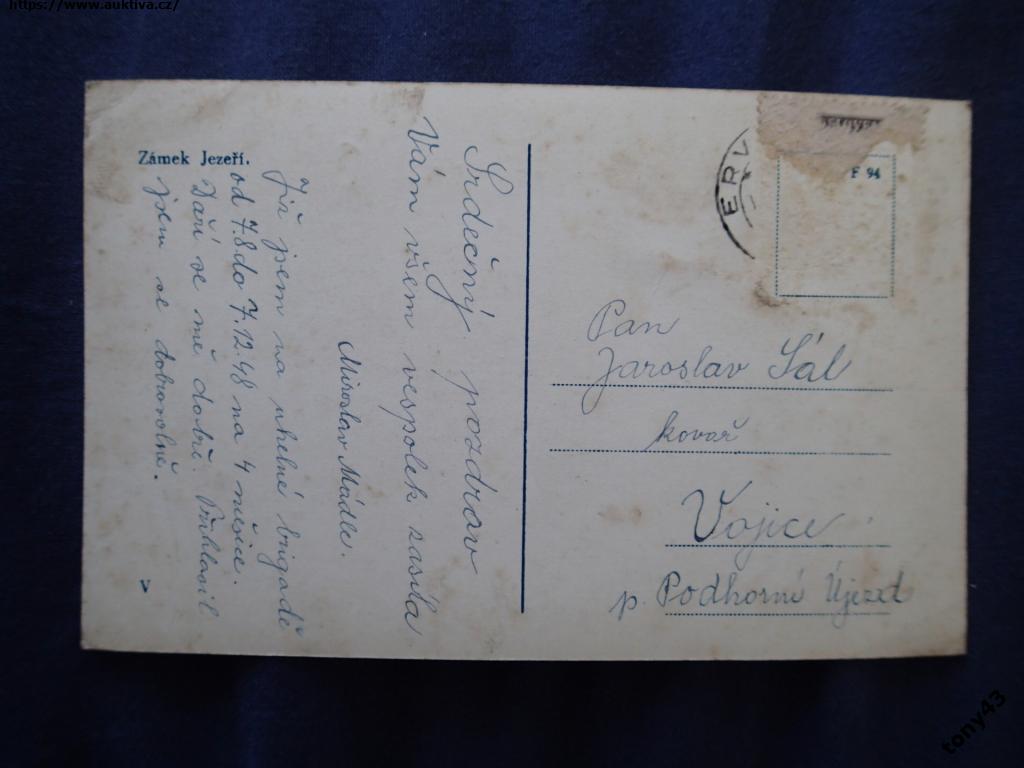 https://www.auktiva.cz/
Zámek Jezeří.
Srdečný pozdrav
Vám všem vespolek zasílá
Miroslav Mádle.
Již jsem na uhelné brigádě
od 7.8 do 7.12.48 na 4 měsíce.
Daří se mě dobře. Přihlásil
jsem se dobrovolně.
V
ERV
F 94
Pan
Jaroslav Sál
kovář
Vojice
p. Podhorní Újezd
tony43